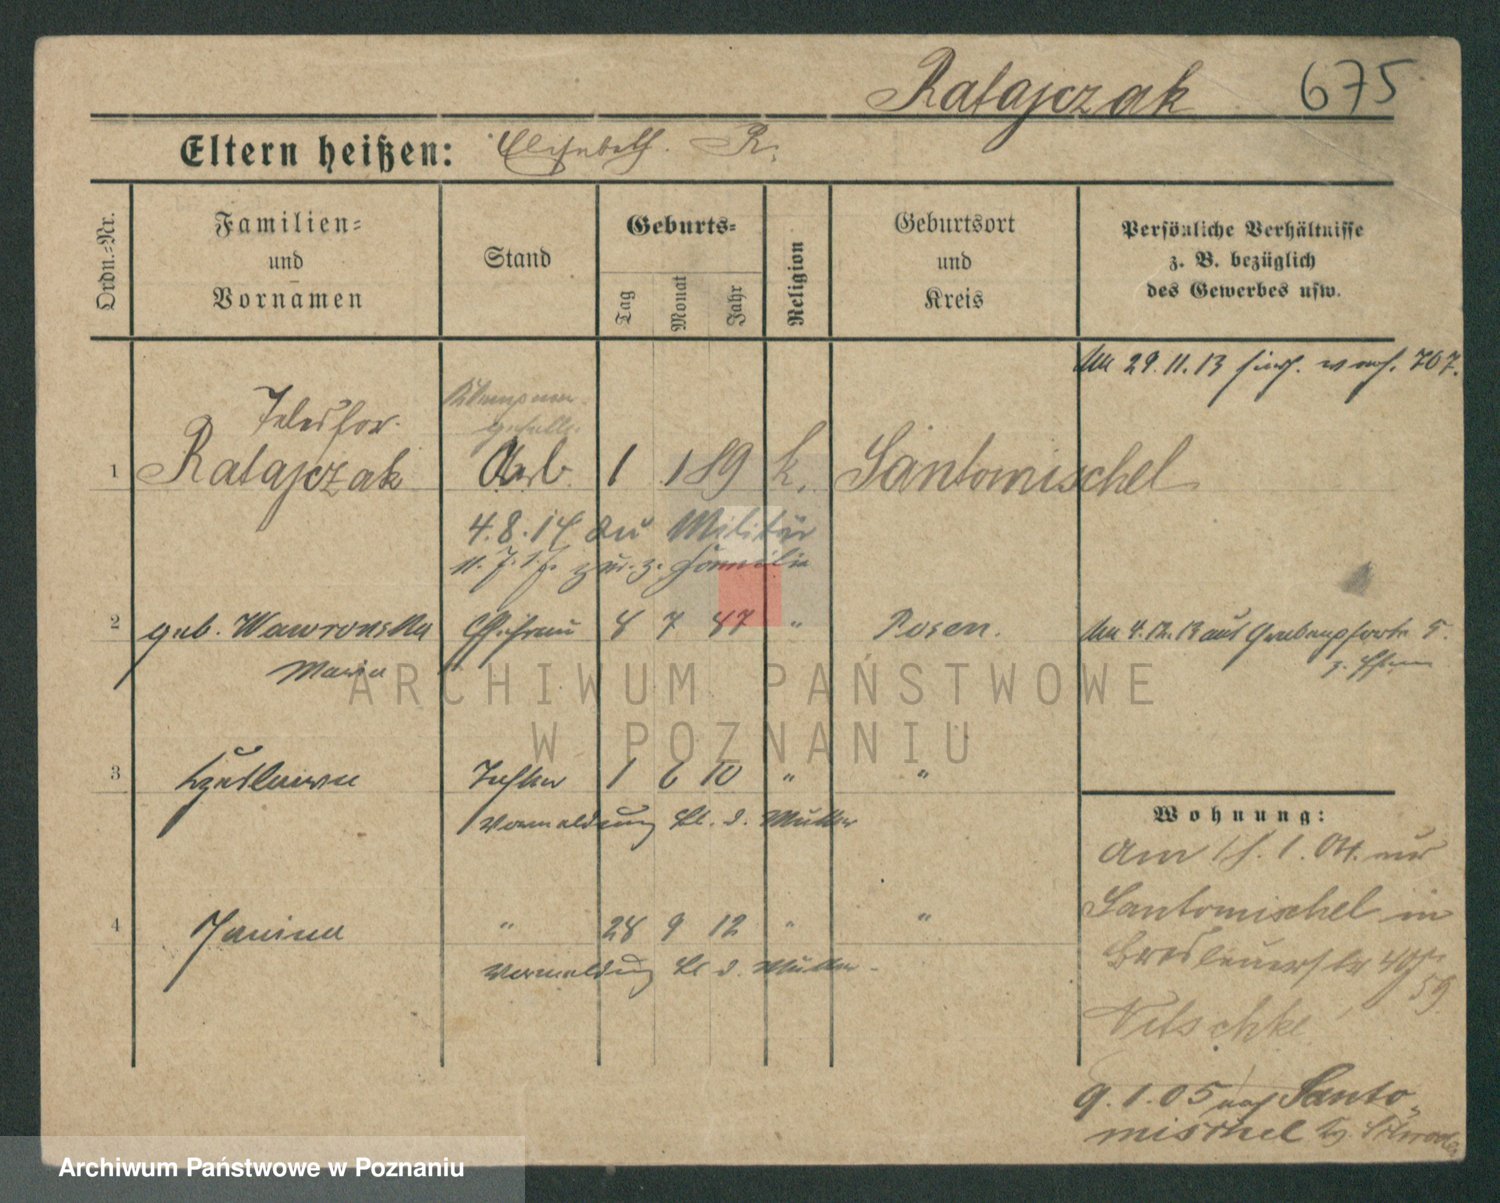 Ratajczak 675
Eltern heißen: Elisabeth. R.
Ordn.-Nr.
Familien-
und
Vornamen
Stand
Geburts-
Tag
Monat
Jahr
Religion
Geburtsort
und
Kreis
Persönliche Verhältnisse
z. B. bezüglich
des Gewerbes usw.
29.11.13 707.
Telesfor
1 Ratajczak Arb. 1 1 89 k. Santomischel
4.8.14 zu Militär
zur. z. Familie
2 geb. Wawronska Ehefrau 8 7 87 " Posen.
4.12.13 aus Grabenpforte 5.
Maria
z. Ehem
3 Czeslawa Tochter 1 6 10 " "
Vormeldung bl. d. Mutter
4 Janina " 28 9 12 " "
Vormeldung bl. d. Mutter
Wohnung:
Am 1. Okt. aus
Santomischel in
Breslauerstr 40
59
Nitschke
9.1.05 nach Santo-
mischel
ARCHIWUM PAŃSTWOWE
W POZNANIU
Archiwum Państwowe w Poznaniu